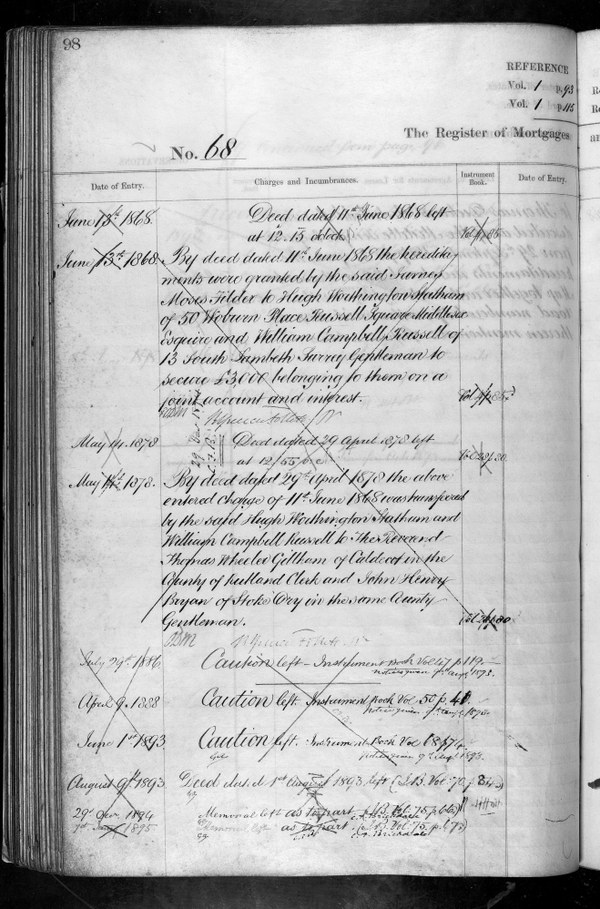 98
REFERENCE
Vol. 1 p. 93
Vol. 1 p. 115
The Register of Mortgages
No. 68
Date of Entry.
Charges and Incumbrances.
Instrument Book.
Date of Entry.
June 13th 1868.
Deed dated 11th June 1868 left
at 12.15 oclock
June 13th 1868.
By deed dated 11th June 1868 the heredita
ments were granted by the said
Moses Tilder to Hugh Worthington Statham
of 50 Woburn Place Russell Square Middlesex
Esquire and William Campbell Russell of
13 South Lambeth Surrey Gentleman to
secure £3,000 belonging to them on a
joint account and interest.
May 14. 1878
Deed dated 29 April 1878 left
at 12/55
May 14th 1878.
By deed dated 29th April 1878 the above
entered charge of 11th June 1868 was transferred
by the said Hugh Worthington Statham and
William Campbell Russell to The Reverend
Thomas Wheeler Gillham of Caldecot in the
County of Rutland Clerk and John Henry
Bryan of Stoke Dry in the same County
Gentleman.
July 29th 1886
Caution left - Instrument Book Vol 47 p 119.
April 9. 1888
Caution left. Instrument Book Vol. 50 p. 41.
June 1st 1893
Caution left. Instrument Book Vol 68 p 74.
August 9th 1893.
Deed dated 1st August 1893 left (I.B. Vol. 70 p 84)
29th 1894
Memorial left as to part (I.B. Vol. 75 p. 665)
1895
Memorial left as to part (I.B. Vol. 75 p. 675)